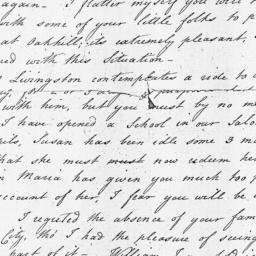 again - I flatter myself you will
with some of your little folks to p
at Oakhill; its extremely pleasant,
ed with this Situation -
Livingston contemplates a ride to
with him, but you must by no m
I have opened a School in our Salo
Susan has been idle some 3 m
that she must now redeem her
Maria has given you much too
account of her, I fear you will be
I regreted the absence of your fam
City, tho' I had the pleasure of seeing
part of it - William